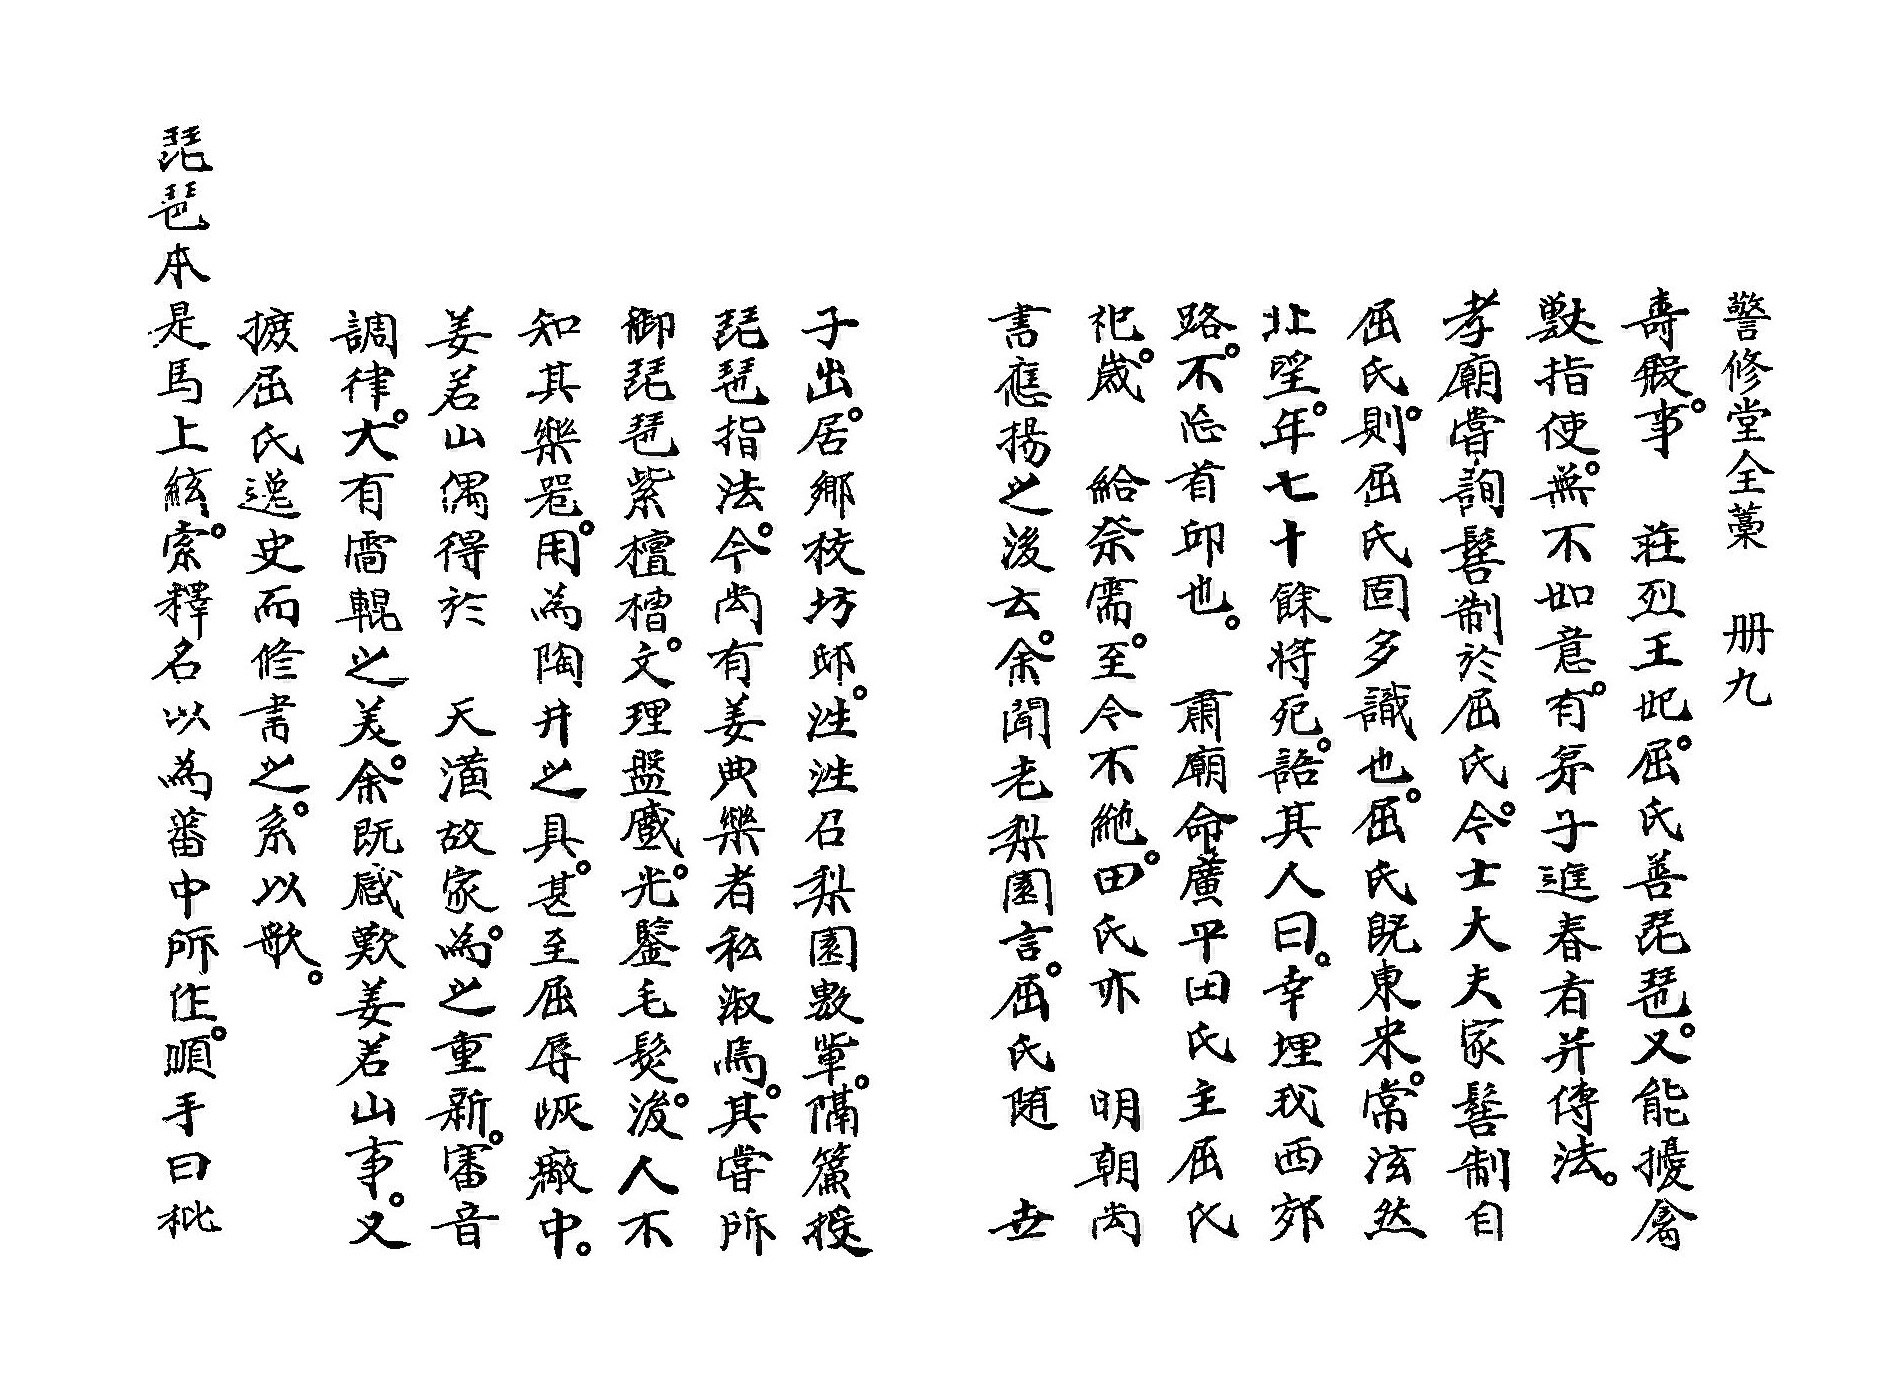 警修堂全藁 册九
壽殿。事 莊烈王妃。屈氏善琵琶。又能擾禽
獸指使。無不如意。有弟子進春者并傳法。
孝廟嘗詢髻制於屈氏。今士大夫家髻制自
屈氏則。屈氏固多識也。屈氏既東來。常泫然
北望。年七十餘將死。語其人曰。幸埋我西郊
路。不忘首邱也。 肅廟命廣平田氏主屈氏
祀。歲 給祭需。至今不絶。田氏亦 明朝尚
書應揚之後云。余聞老梨園言。屈氏随 世
子出。居鄉校坊邸。涯涯召梨園數輩。隔簾授
琵琶指法。今尚有姜典樂者私淑焉。其嘗所
御琵琶紫檀槽。文理盤蹙。光鑒毛髮。後人不
知其樂器。用為陶井之具。甚至屈辱灰廠中。
姜若山偶得於 天潢故家。為之重新。審音
調律。大有雷輥之美。余既感歎姜若山事。又
摭屈氏逸史而修書之。系以歌。
琵琶本是馬上絃索。釋名以為蕃中所作。順手曰枇